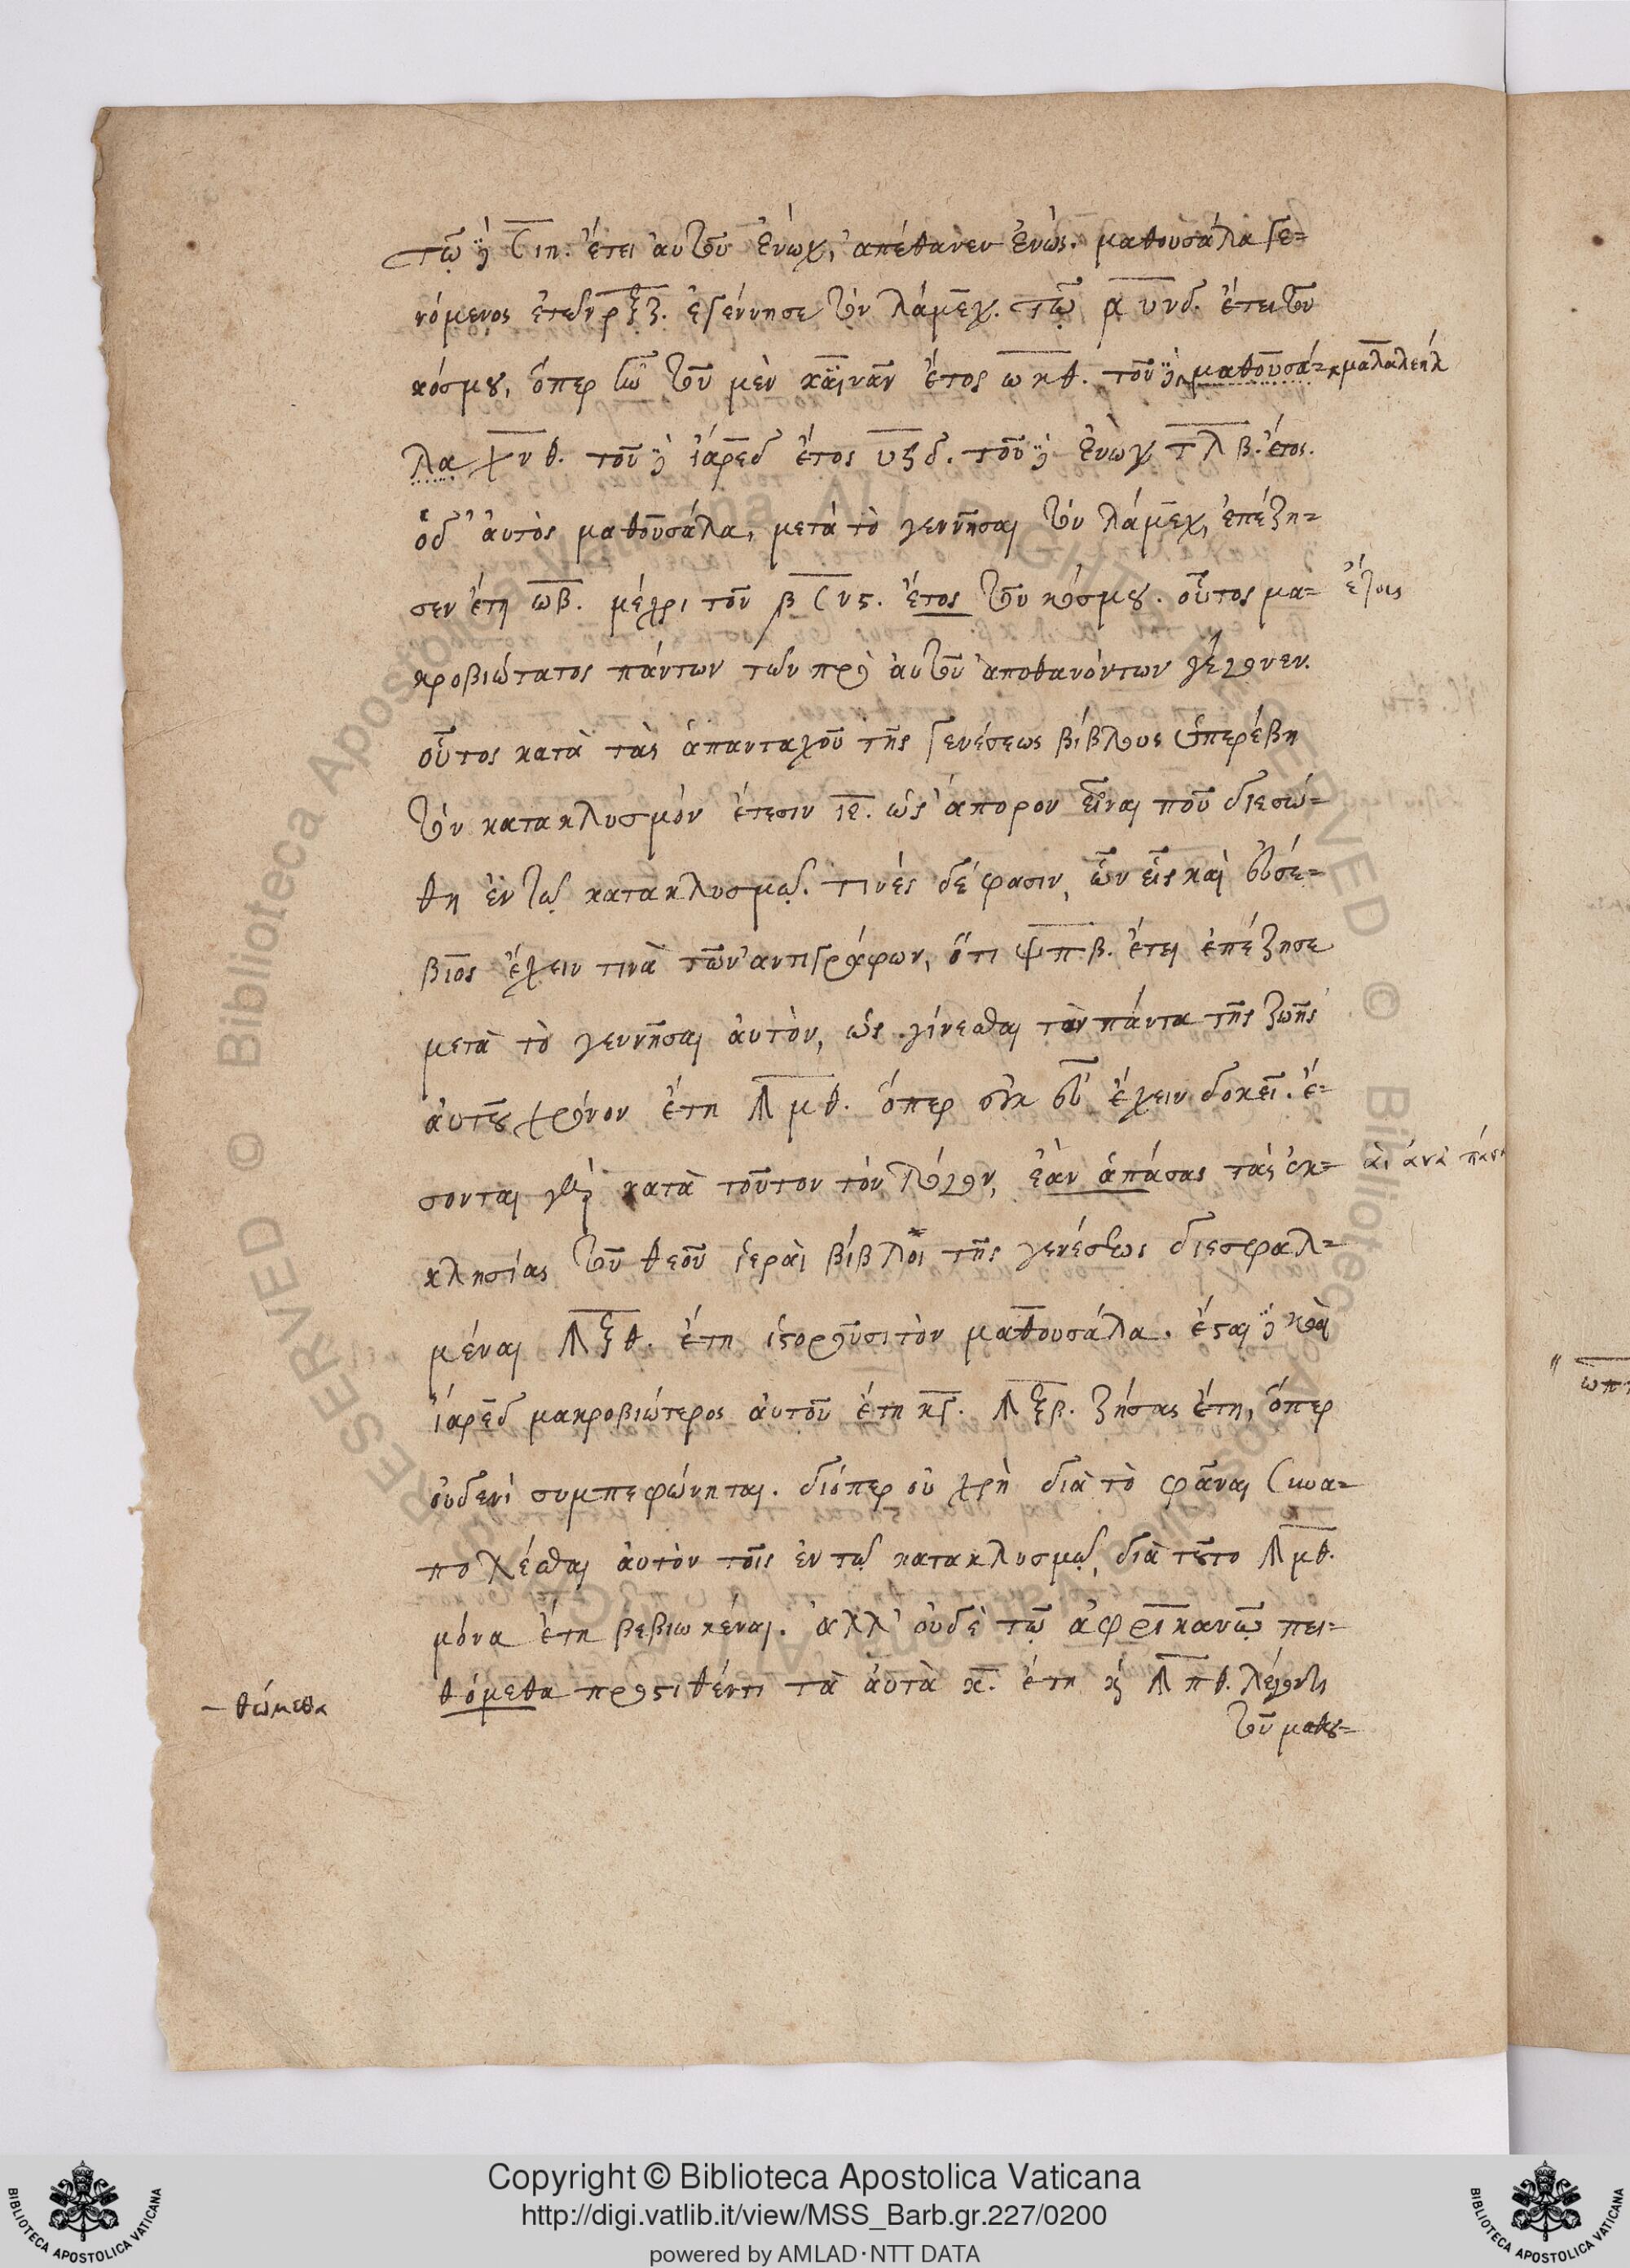 τῷ δὲ Ϛιη. ἔτει αὐτοῦ Ἐνώχ, ἀπέθανεν Ἐνώς. μαθουσάλα γε=
νόμενος ἐτῶν ρξζ. ἐγέννησε τὸν λάμεχ. τῷ ᾳυνδ. ἔτει τοῦ
κόσμου, ὅπερ ἦν τοῦ μὲν καϊνᾶν ἔτος ωκθ. τοῦ δὲ μαθουσά=
μαλαλεὴλ
λα χνθ. τοῦ δὲ ἰάρεδ ἔτος υϟδ. τοῦ δὲ Ἐνὼχ τλβ. ἔτος.
ὁ δ' αὐτὸς μαθουσάλα, μετὰ τὸ γεννῆσαι τὸν λάμεχ, ἐπέζη=
σεν ἔτη ωβ. μέχρι τοῦ βϹνϛ. ἔτος τοῦ κόσμου. οὗτος μα=
ἔτους
κροβιώτατος πάντων τῶν πρὸ αὐτοῦ ἀποθανόντων γέγονεν.
οὗτος κατὰ τὰς ἁπανταχοῦ τῆς γενέσεως βίβλους ὑπερέβη
τὸν κατακλυσμὸν ἔτεσιν ιε. ὡς ἄπορον εἶναι ποῦ διεσώ=
θη ἐν τῷ κατακλυσμῷ. τινές δέ φασιν, ὧν εἷς καὶ εὐσέ=
βιος ἔχειν τινὰ τῶν ἀντιγράφων, ὅτι ψπβ. ἔτει ἐπέζησε
μετὰ τὸ γεννῆσαι αὐτόν, ὡς γίνεσθαι τὸν πάντα τῆς ζωῆς
αὐτοῦ χρόνον ἔτη ϡμθ. ὅπερ οὐκ εὖ ἔχειν δοκεῖ. ἔ=
σονται γὰρ κατὰ τοῦτον τὸν λόγον, ἐὰν ἁπάσας τὰς ἐκ=
αἱ ἀνὰ
κλησίας τοῦ θεοῦ ἱεραὶ βίβλοι τῆς γενέσεως διεσφαλ=
μέναι ϡξθ. ἔτη ἱστοροῦσι τὸν μαθουσάλα. ἔσται δὲ καὶ
ἰάρεδ μακροβιώτερος αὐτοῦ ἔτη κγ. ϡξβ. ζήσας ἔτη, ὅπερ
οὐδενὶ συμπεφώνηται. διόπερ οὐ χρὴ διὰ τὸ φάναι συνα=
πολέσθαι αὐτὸν τοῖς ἐν τῷ κατακλυσμῷ, διὰ τοῦτο ϡμθ.
μόνα ἔτη βεβιωκέναι. ἀλλ' οὐδὲ τῷ ἀφρικανῷ πει=
θόμεθα προστιθέντι τὰ αὐτὰ κ. ἔτη καὶ ϡπθ. λέγοντι
θώμεθα
τοῦ μαθου=
Copyright © Biblioteca Apostolica Vaticana
http://digi.vatlib.it/view/MSS_Barb.gr.227/0200
powered by AMLAD·NTT DATA
BIBLIOTECA APOSTOLICA VATICANA
BIBLIOTECA APOSTOLICA VATICANA